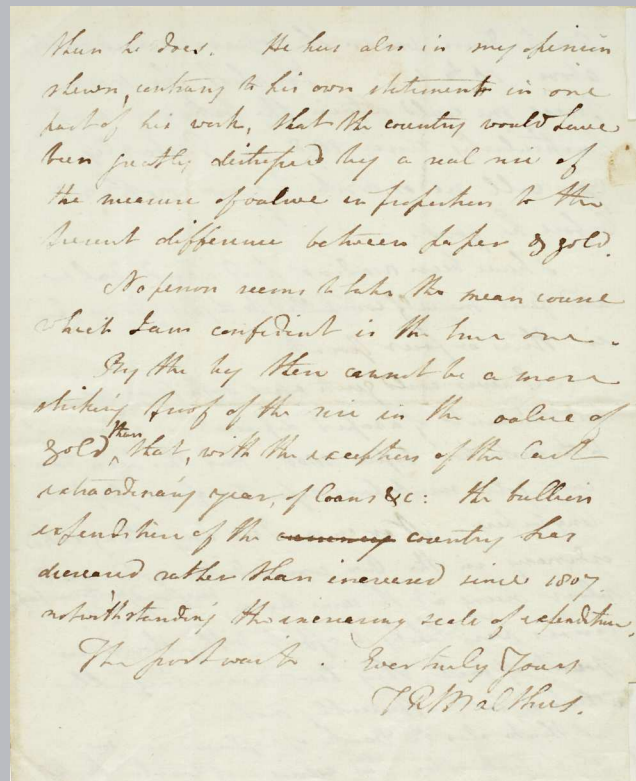 than he does. He has also in my opinion
shewn, contrary to his own statements in one
part of his work, that the country would have
been greatly distressed by a real rise of
the measure of value in proportion to the
present difference between paper & gold.
No person seems to take the mean course
which I am confident is the true one.
By the by there cannot be a more
striking proof of the rise in the value of
gold than, that, with the exception of the last
extraordinary year, of loans &c: the bullion
expenditure of the currency country has
decreased rather than increased since 1807
notwithstanding the increasing scale of expenditure.
The post waits. Ever truly Yours
T R Malthus.